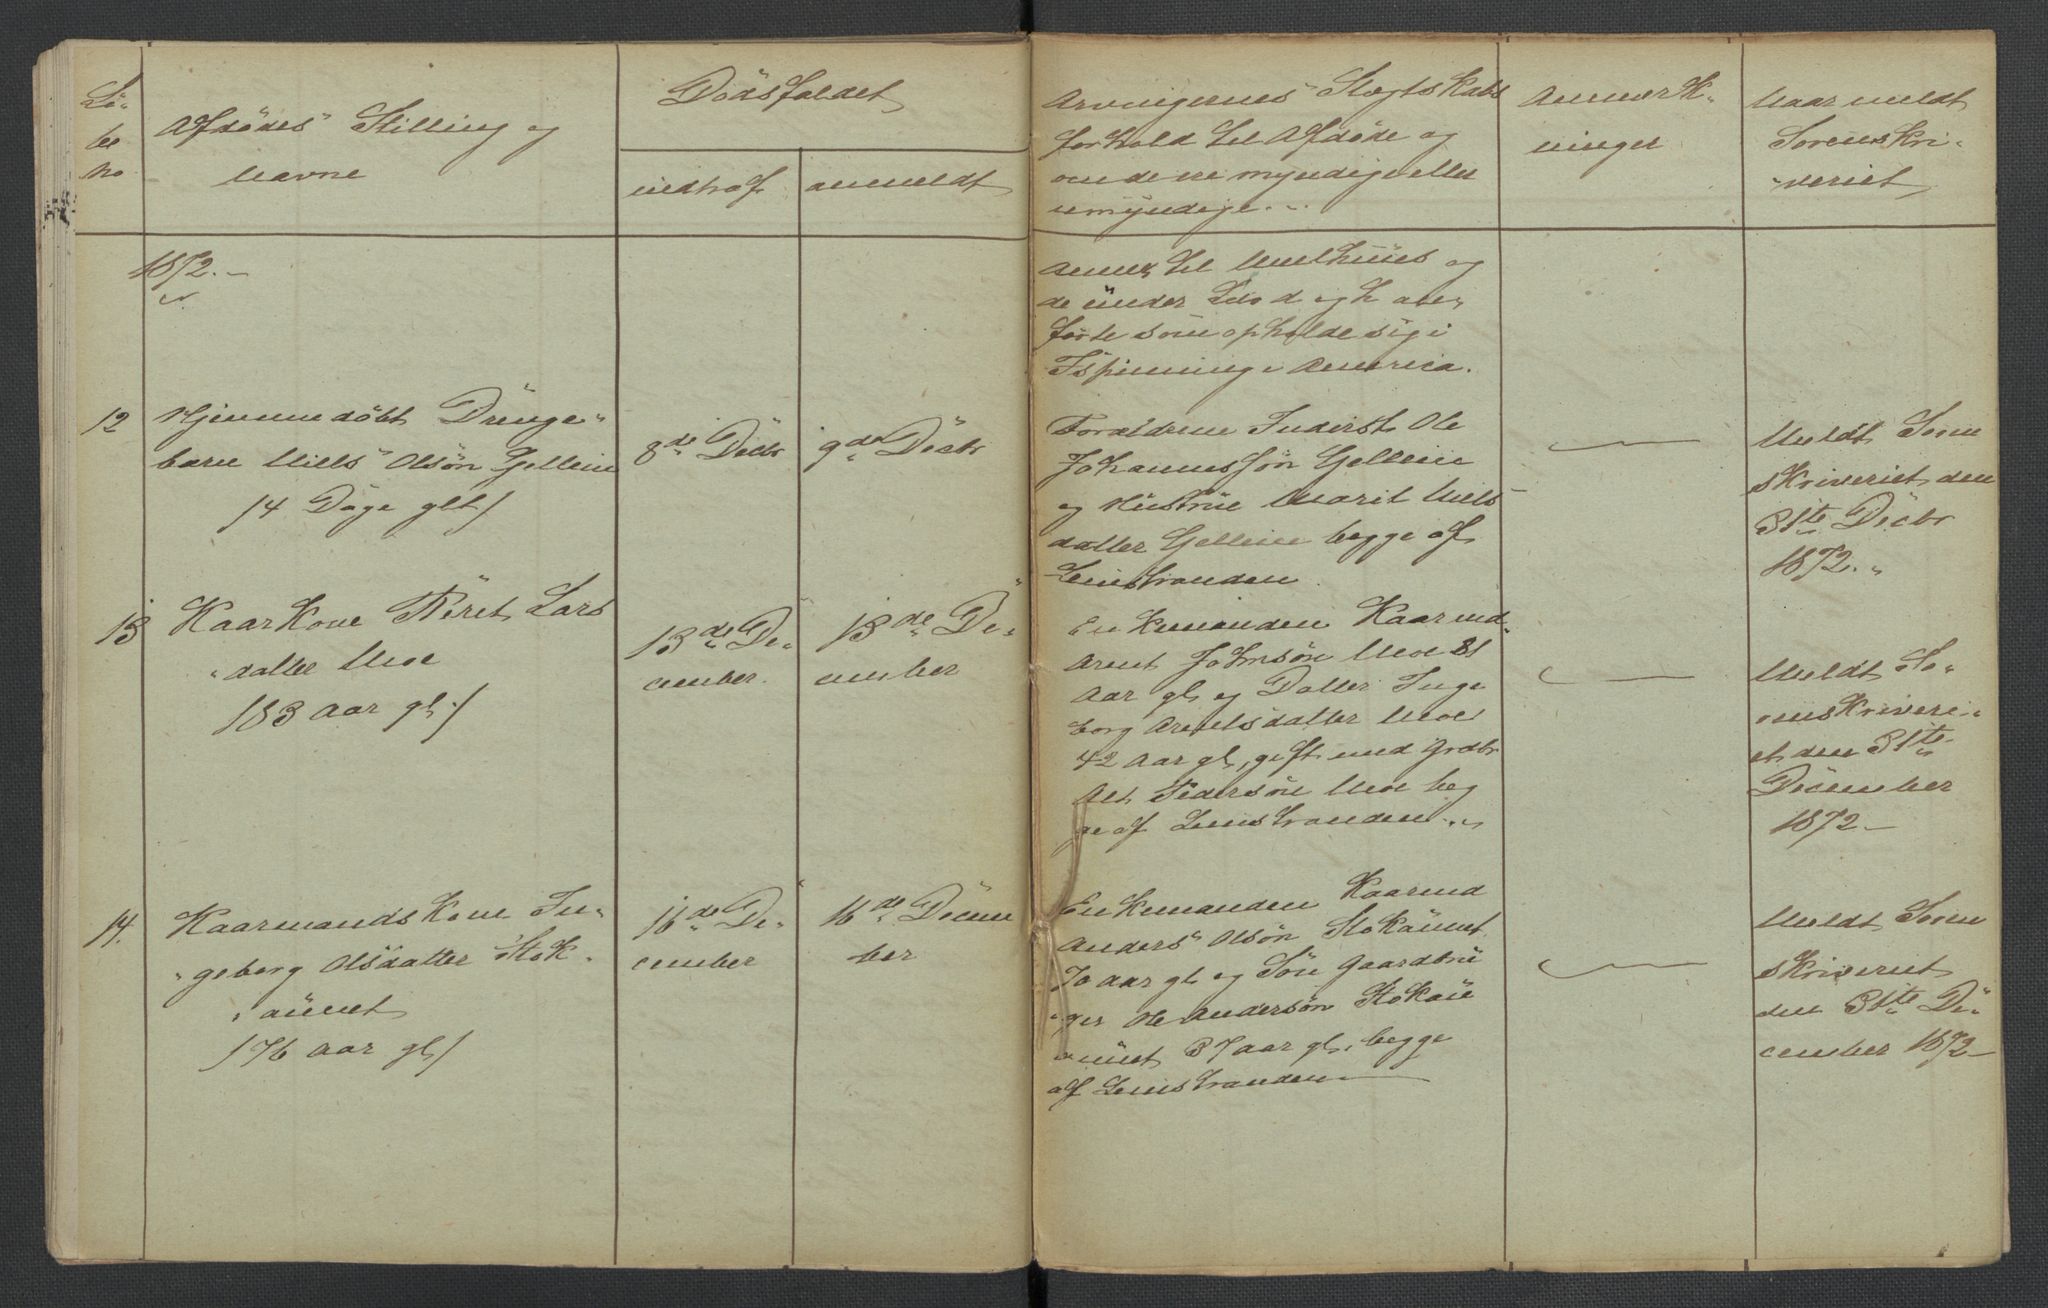 Lö-
be
no
Afdödes Stilling og
Navne
Dödsfaldet
indtraf
anmeldt
Arvingernes Slægtskabs
forhold til Afdöde og
om de ere myndige eller
umyndige.
Anmærk-
ninger
Naar meldt
Sorenskri-
veriet
1872.-
til Melhuus og
de under d og h an-
förte som opholde sig i
Ispinning i America.
12
Hjemmedöbt Drenge-
barn Nills Olsön Gellein
/4 Döge glt/
8de Decbr
9de Decbr
Foraldrene Inderst Ole
Johannessön Gellein
og Hustrue Marit Niels
datter Gellein begge af
Leinstranden.
Meldt Soren
skriveriet den
31te Decbr
1872.
13
Kaarkone Beret Lars
datter Moe
/83 aar gl./
13de De-
cember.
13de De-
cember
Enkemanden Kaarmd.
Arnt Johnsön Moe 81
Aar gl og Datter Inge
borg Arntsdatter Moe
42 Aar gl, gift med Grdbr
Ole Pedersön Moe beg
ge af Leinstranden.
Meldt So-
renskriveri-
et den 31te
December
1872-
14.
Kaarmands Kone In-
geborg Olsdatter Stok-
aunet
/76 aar gl/
16de De-
cember
16de Decem
ber
Enkemanden Kaarmd
Anders Olsön Stokaunet
70 aar gl og Sön Gaardbru
ger Ole Andersön Stokau
net 37 aar gl. begge
af Leinstranden
Meldt Soren
skriveriet
den 31te De-
cember 1872-